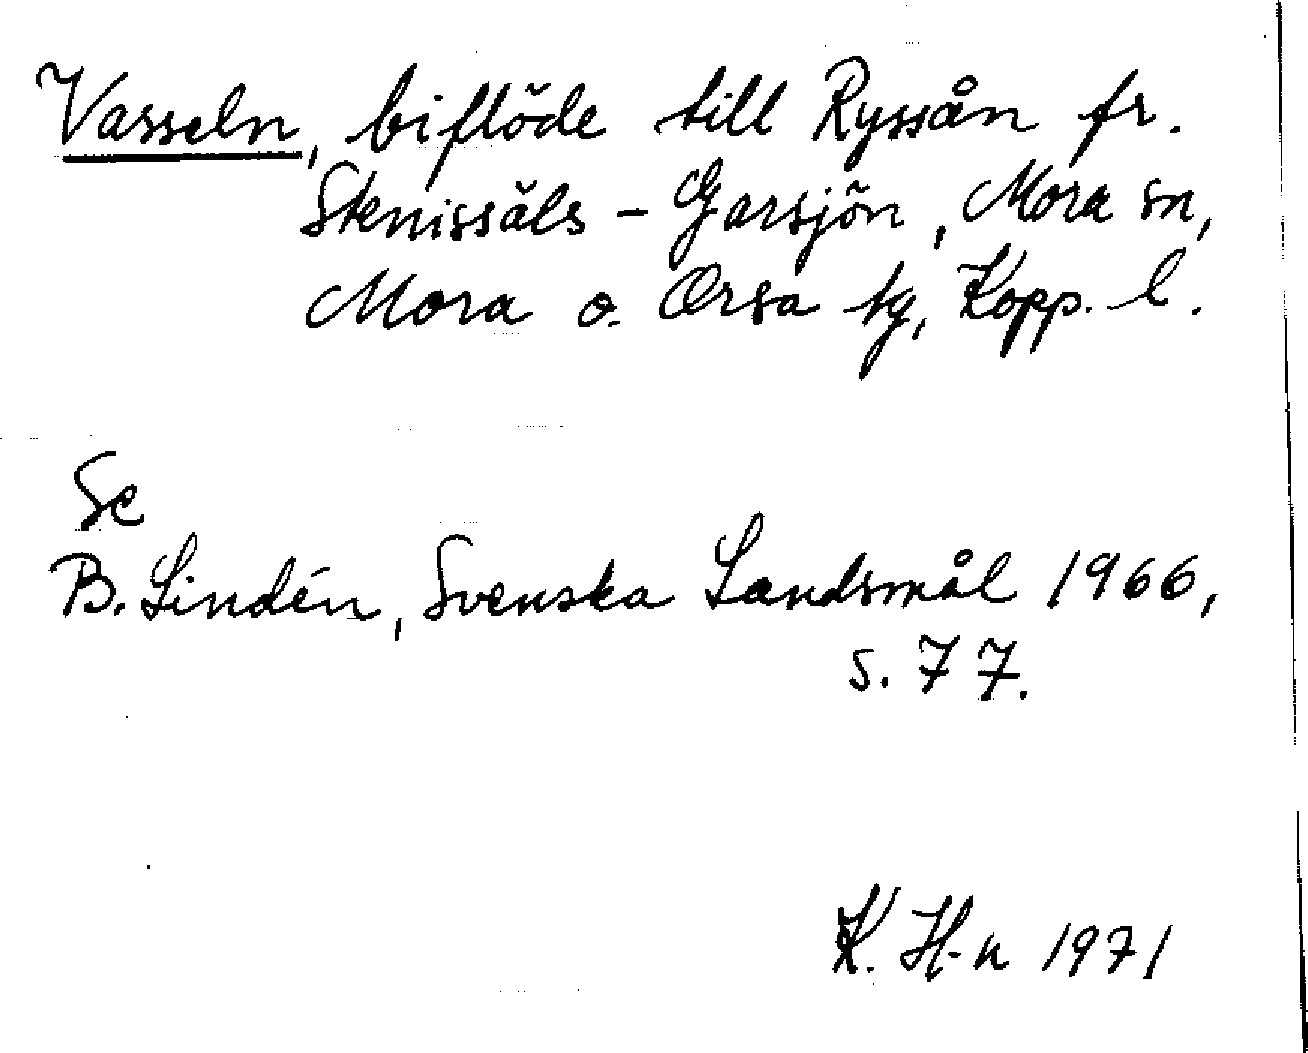 Vasseln, biflöde till Ryssån fr.
Stenissäls - Garsjön, Mora sn,
Mora o. Orsa tg, Kopp. l.
Se
B. Lindén, Svenska Landsmål 1966,
s. 77.
K. H-n 1971